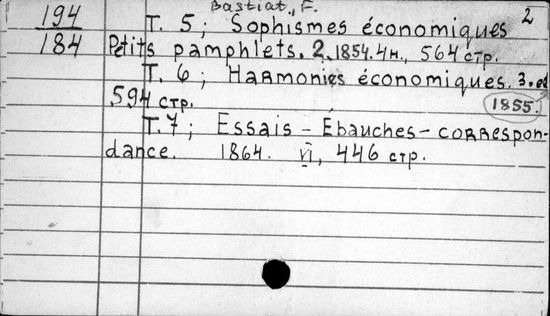 Bastiat, F.
2
194
184
T. 5; Sophismes économiques
Petits pamphlets. 2. 1854. 4н., 564 стр.
T. 6; Harmonies économiques. 3. ed
594 стр.
1855.
T. 7; Essais – Ébauches – correspon-
dance. 1864. VI, 446 стр.